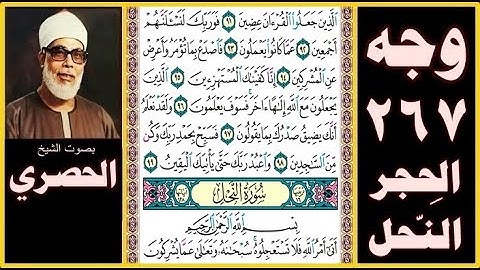 وجه
٢٦٧
الحِجر
النّحل
الَّذِينَ جَعَلُوا الْقُرْءَانَ عِضِينَ ٩١ فَوَرَبِّكَ لَنَسْـَٔلَنَّهُمْ
أَجْمَعِينَ ٩٢ عَمَّا كَانُوا يَعْمَلُونَ ٩٣ فَاصْدَعْ بِمَا تُؤْمَرُ وَأَعْرِضْ
عَنِ الْمُشْرِكِينَ ٩٤ إِنَّا كَفَيْنَاكَ الْمُسْتَهْزِءِينَ ٩٥ الَّذِينَ
يَجْعَلُونَ مَعَ اللَّهِ إِلَٰهًا ءَاخَرَ فَسَوْفَ يَعْلَمُونَ ٩٦ وَلَقَدْ نَعْلَمُ
أَنَّكَ يَضِيقُ صَدْرُكَ بِمَا يَقُولُونَ ٩٧ فَسَبِّحْ بِحَمْدِ رَبِّكَ وَكُنْ
مِنَ السَّٰجِدِينَ ٩٨ وَاعْبُدْ رَبَّكَ حَتَّىٰ يَأْتِيَكَ الْيَقِينُ ٩٩
سُورَةُ النَّحْلِ
بِسْمِ اللَّهِ الرَّحْمَٰنِ الرَّحِيمِ
أَتَىٰ أَمْرُ اللَّهِ فَلَا تَسْتَعْجِلُوهُ سُبْحَٰنَهُ وَتَعَٰلَىٰ عَمَّا يُشْرِكُونَ
بصوت الشيخ
الحصري